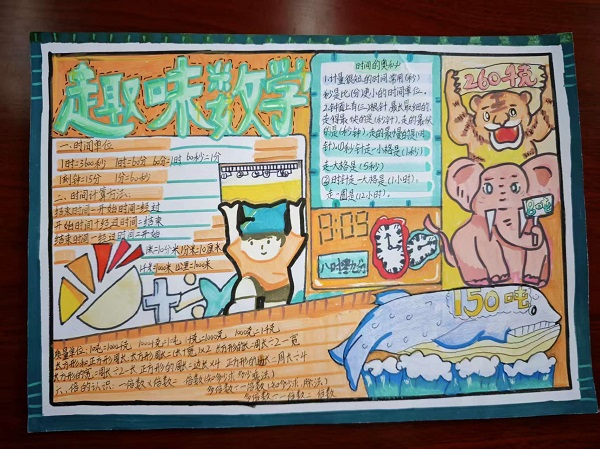 趣味数学
一、时间单位
1时=3600秒 1时=60分 60分=1时 60秒=1分
1刻钟=15分 1分=60秒
二、时间计算方法:
结束时间-开始时间=经过
开始时间+经过时间=结束
结束时间-经过时间=开始
时间的奥秘
1.计量很短的时间常用(秒)
秒是比(分)更小的时间单位。
2.钟面上有(三)根针,最长最细的,
走得最快的是(秒针),走的最快
的是(秒针),走的最慢的是(时
针)。①秒针走一小格是(1秒)
走一大格是(5秒)
②时针走一大格是(1小时),
走一圈是(12小时)。
260千克
9:09
八时零九分
8吨
150吨
1米=10分米 1分米=10厘米
1千米=1000米 1公里=1000米
质量单位:1吨=1000千克 1000千克=1吨 1千克=1000克 1000克=1千克
长方形和正方形周长:长方形周长=(长+宽)×2 长方形的长=周长÷2-宽
长方形的宽=周长÷2-长 正方形的周长=边长×4 正方形的边长=周长÷4
六、倍的认识:一倍数×倍数=
多倍数÷一倍数
多倍数÷一倍数=倍数